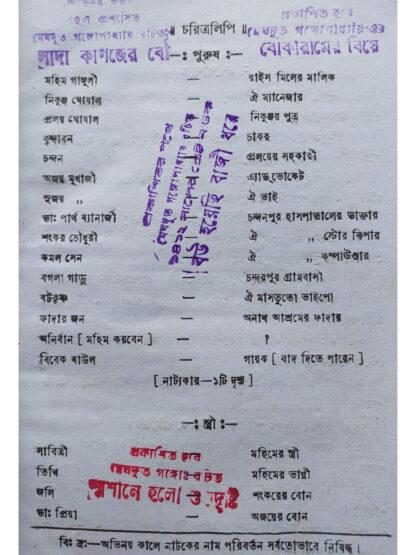 বহুল প্রশংসিত
মেঘদূত গঙ্গোপাধ্যায় রচিত
সাদা কাগজের বৌ
॥ চরিত্রলিপি ॥
প্রকাশিত হবে
মেঘদূত গঙ্গোপাধ্যায়-এর
বোকারামের বিয়ে
—: পুরুষ :—
মহিম গাঙ্গুলী — রাইস মিলের মালিক
নিকুঞ্জ ঘোষাল — ঐ ম্যানেজার
প্রলয় ঘোষাল — নিকুঞ্জর পুত্র
বৃন্দাবন — চাকর
চন্দন — প্রলয়ের সহকারী
অজয় মুখার্জী — এ্যাডভোকেট
সুজয় „ — ঐ ভাই
ডাঃ পার্থ ব্যানার্জী — চন্দনপুর হাসপাতালের ডাক্তার
শংকর চৌধুরী — ঐ „ স্টোর কিপার
কমল সেন — ঐ „ কম্পাউণ্ডার
বগলা গাড়ু — চন্দনপুর গ্রামবাসী
বটকৃষ্ণ — ঐ মাসতুতো ভাইপো
ফাদার জন — অনাথ আশ্রমের ফাদার
অনির্বান [ মহিম করবেন ] — ?
বিবেক বাউল — গায়ক [ বাদ দিতে পারেন ]
[ নাট্যকার—১টি দৃশ্য ]
প্রকাশিতের পথে
মেঘদূত গঙ্গোপাধ্যায় রচিত
বউ হয়েছি বাজী ধরে
—: স্ত্রী :—
সাবিত্রী — মহিমের স্ত্রী
তিথি — মহিমের ভাগ্নী
জলি — শংকরের বোন
ডাঃ প্রিয়া — অজয়ের বোন
প্রকাশিত হবে
মেঘদূত গঙ্গোঃ রচিত
শ্মশানে হলো শুভদৃষ্টি
বিঃ দ্রঃ—অভিনয় কালে নাটকের নাম পরিবর্তন সর্বতোভাবে নিষিদ্ধ।